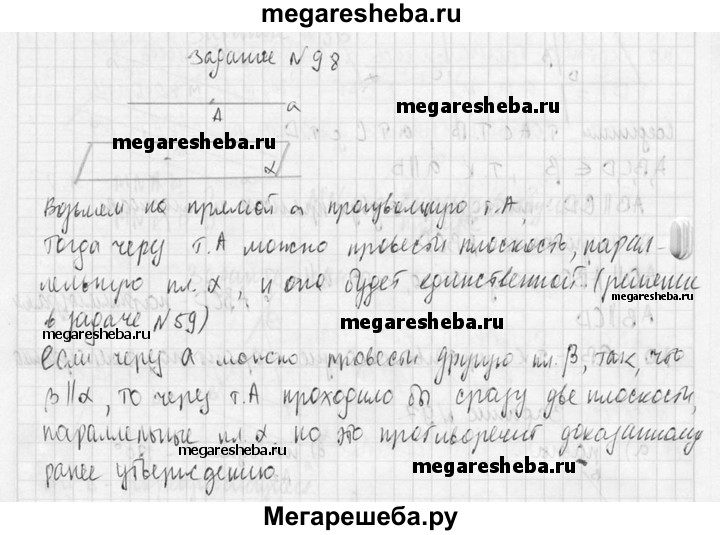 megaresheba.ru
Задание N98
A a
megaresheba.ru
megaresheba.ru
α
Возьмем на прямой a произвольную т. A,
тогда через т. A можно провести плоскость, парал-
лельную пл. α, и она будет единственной. (решение
megaresheba.ru
в задаче N59)
megaresheba.ru
megaresheba.ru
Если через a можно провести другую пл. β, так, что
β || α, то через т. A проходило бы сразу две плоскости,
параллельные пл. α но это противоречит доказанному
megaresheba.ru
ранее утверждению.
megaresheba.ru
Мегарешеба.ру